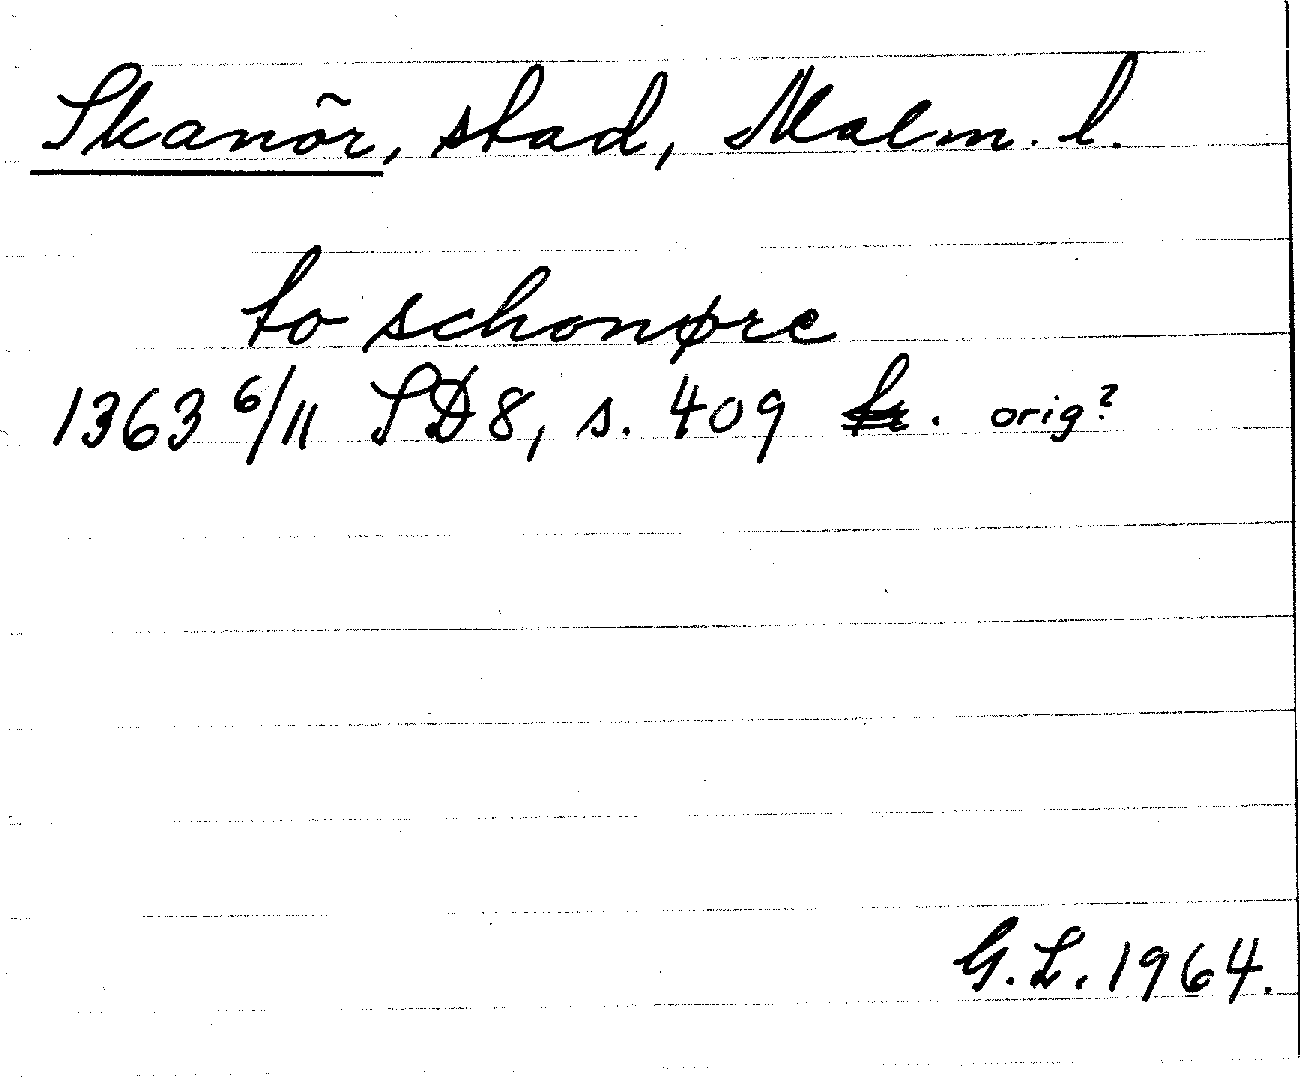 Skanör, stad, Malm. l.
to schonøre
1363 6/11 SD8, s. 409 fr. orig?
G.L. 1964.